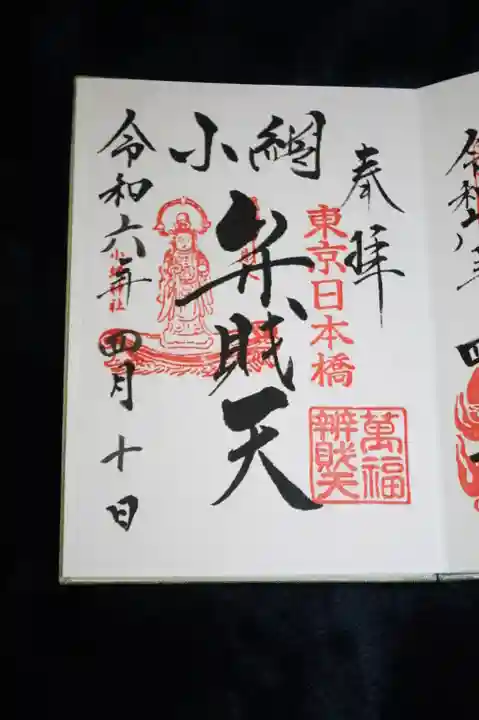 奉拝
東京日本橋
萬福
辨財天
小網
弁財天
小網神社
令和六年四月十日